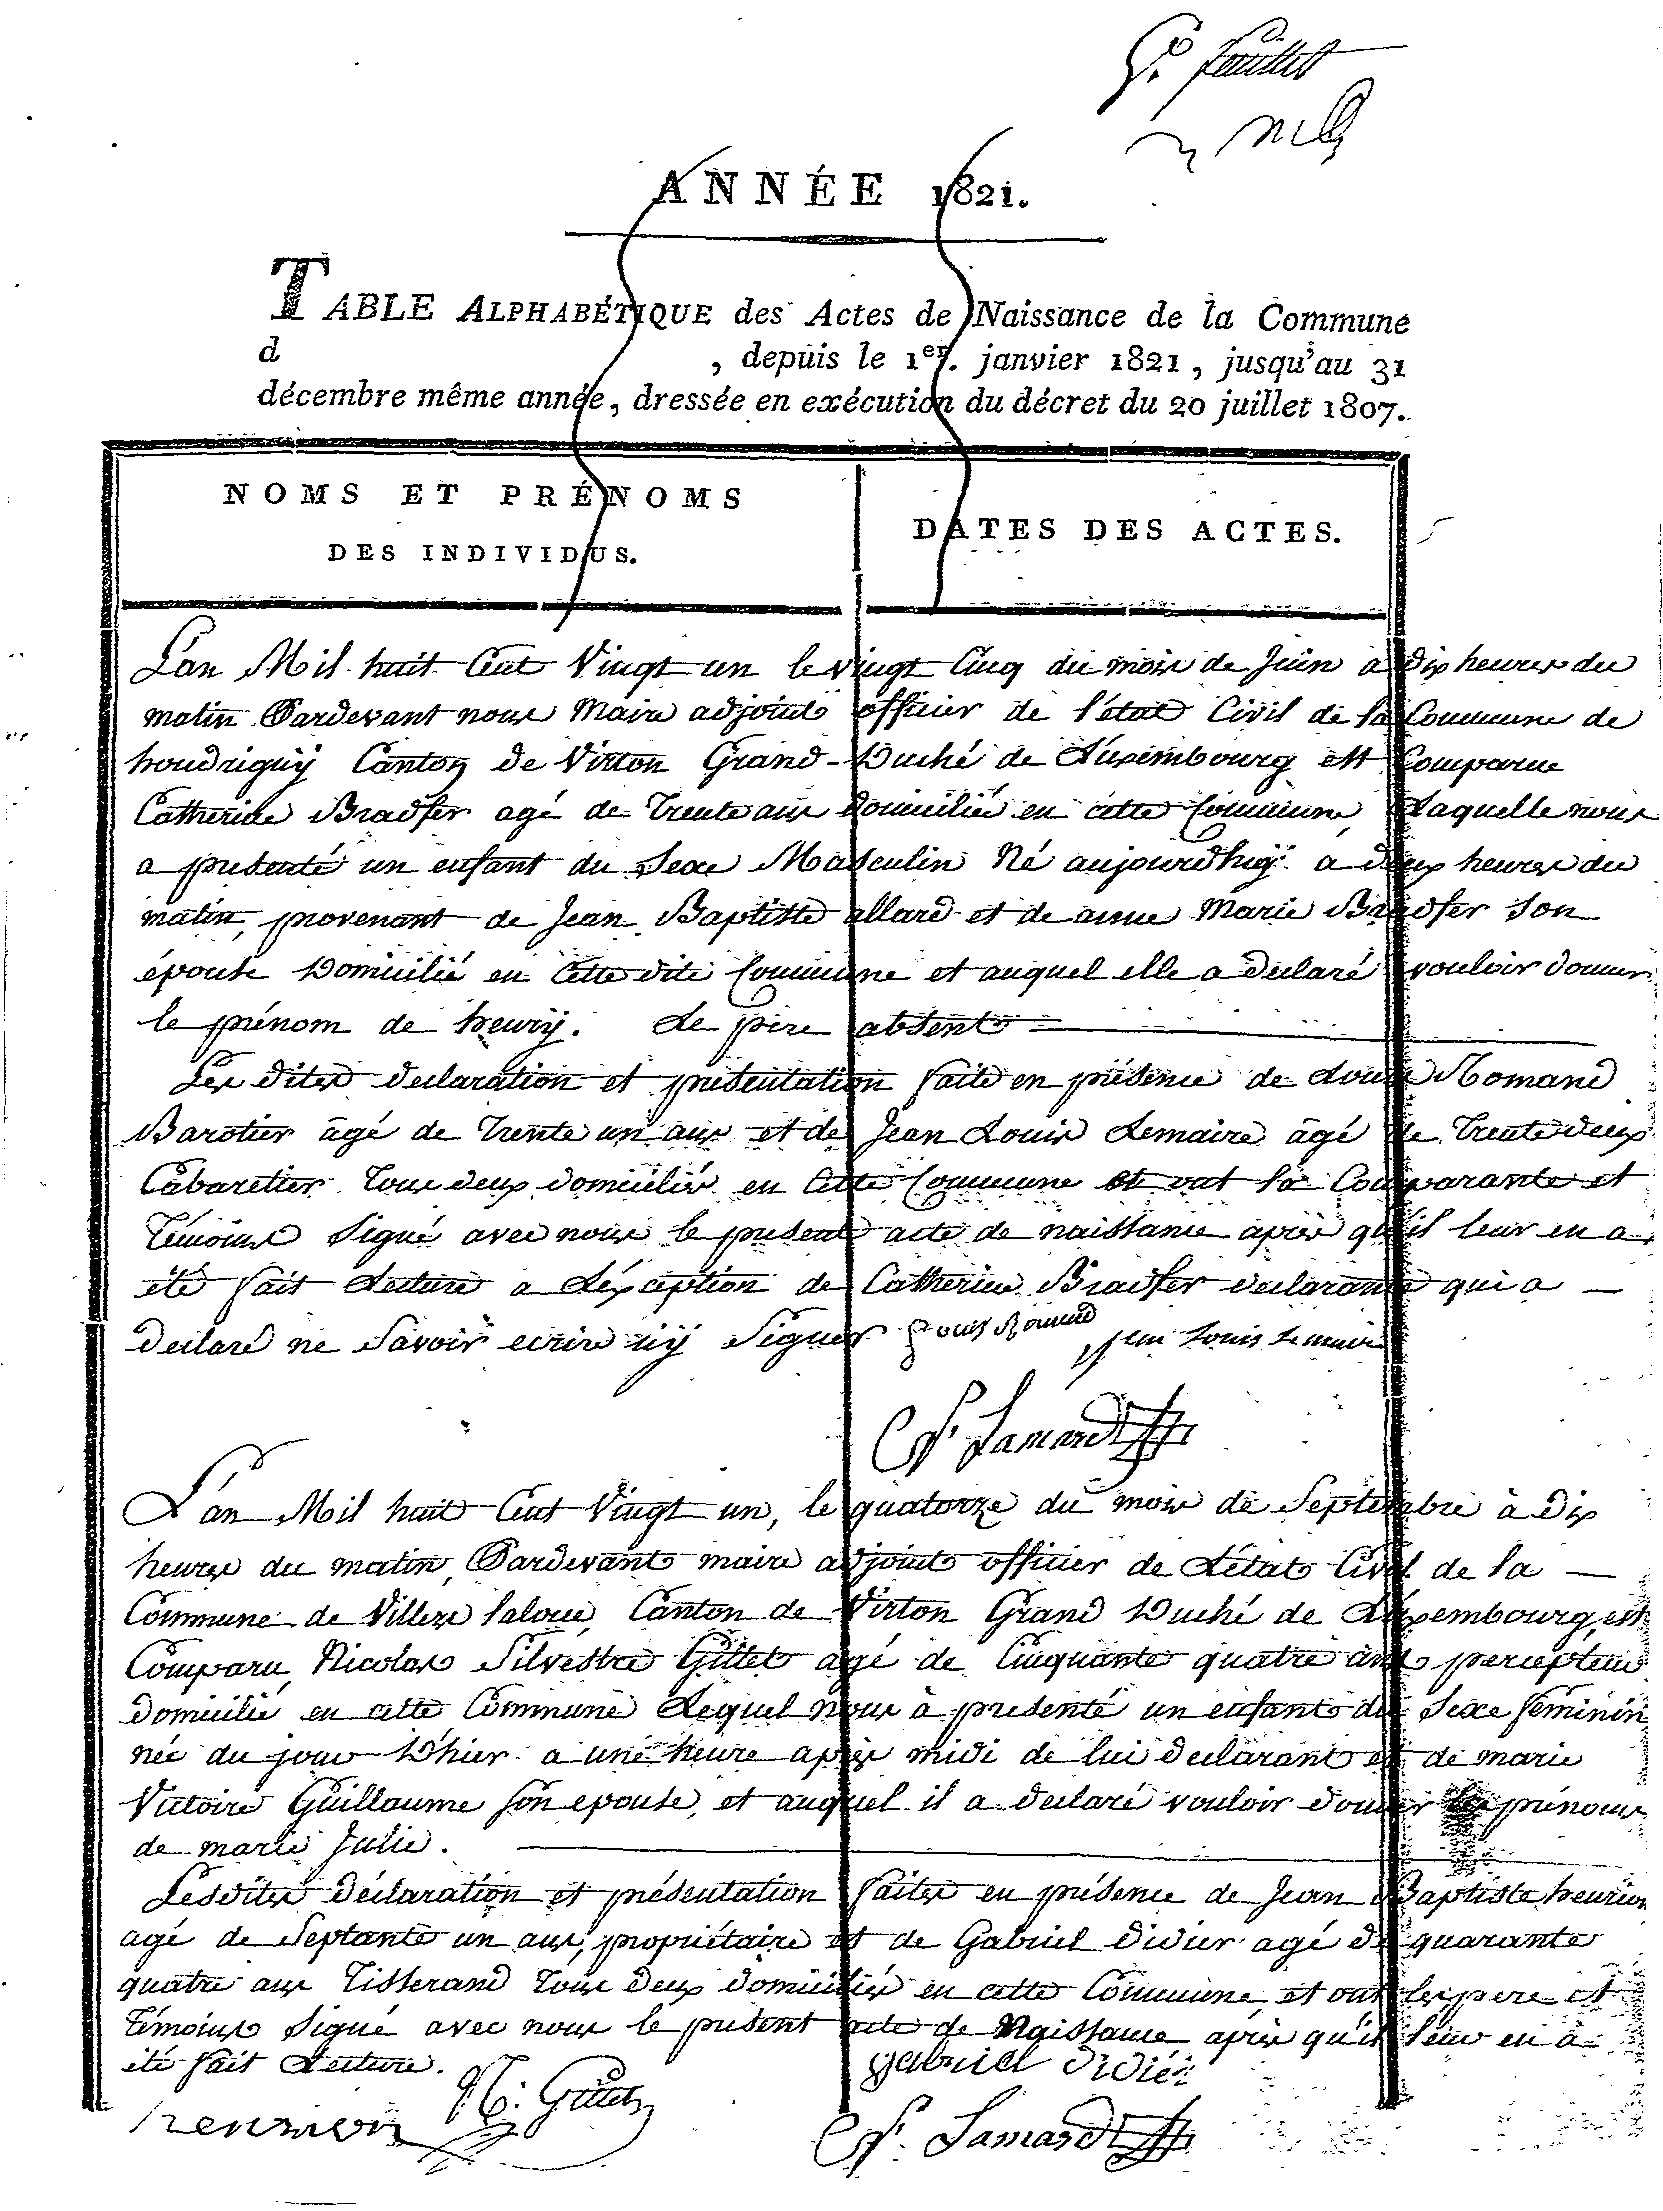 feuillet
ANNÉE 1821.
TABLE ALPHABÉTIQUE des Actes de Naissance de la Commune
d , depuis le 1er. janvier 1821, jusqu'au 31
décembre même année, dressée en exécution du décret du 20 juillet 1807.
NOMS ET PRÉNOMS
DES INDIVIDUS.
DATES DES ACTES.
L'an Mil huit Cent Vingt un le vingt Cinq du mois de Juin a dix heures du
matin Pardevant nous Maire adjoint officier de l'état Civil de la Commune de
houdrigny Canton de Virton Grand-Duché de Luxembourg est Comparue
Catherine Bradfer agé de Trente ans domiciliée en cette Commune, Laquelle nous
a presenté un enfant du Sexe Masculin Né aujourdhuy a deux heures du
matin, provenant de Jean Baptiste allard et de anne Marie Bradfer son
épouse Domicilié en Cette dite Commune et auquel elle a declaré vouloir donner
le prénom de henry. Le pere absent
Les dites declaration et presentation faite en présence de Louis Romand
Barotier agé de Trente un ans et de Jean Louis Lemaire agé de Trente deux
Cabaretier Tous deux domiciliés en Cette Commune et ont la Comparante et
Témoins Signé avec nous le present acte de naissance après qu'il leur en a
été fait Lecture a Léxception de Catherine Bradfer declarante qui a
declaré ne Savoir ecrire ny Signer Louis Romand
jean louis lemaire
L'an Mil huit Cent Vingt un, le quatorze du mois de Septembre à dix
heures du matin, Pardevant maire adjoint officier de L'état Civil de la
Commune de Villers laloue, Canton de Virton Grand Duché de Luxembourg, est
Comparu, Nicolas Silvestre Gillet agé de Cinquante quatre ans percepteur
domicilié en cette Commune Lequel nous à presenté un enfant du Sexe féminin
née du jour D'hier a une heure après midi de lui declarant et de marie
Victoire Guillaume son epouse, et auquel il a declaré vouloir donner les prénoms
de marie Julie.
Lesdites déclaration et présentation faites en présence de Jean Baptiste henrion
agé de Septante un ans, propriétaire et de Gabriel Didier agé de quarante
quatre ans Tisserand Tous deux domiciliés en cette Commune, et ont les pere et
Témoins Signé avec nous le present acte de Naissance après qu'il leur en à
été fait Lecture.
gabriel didier
henrion N: Gillet